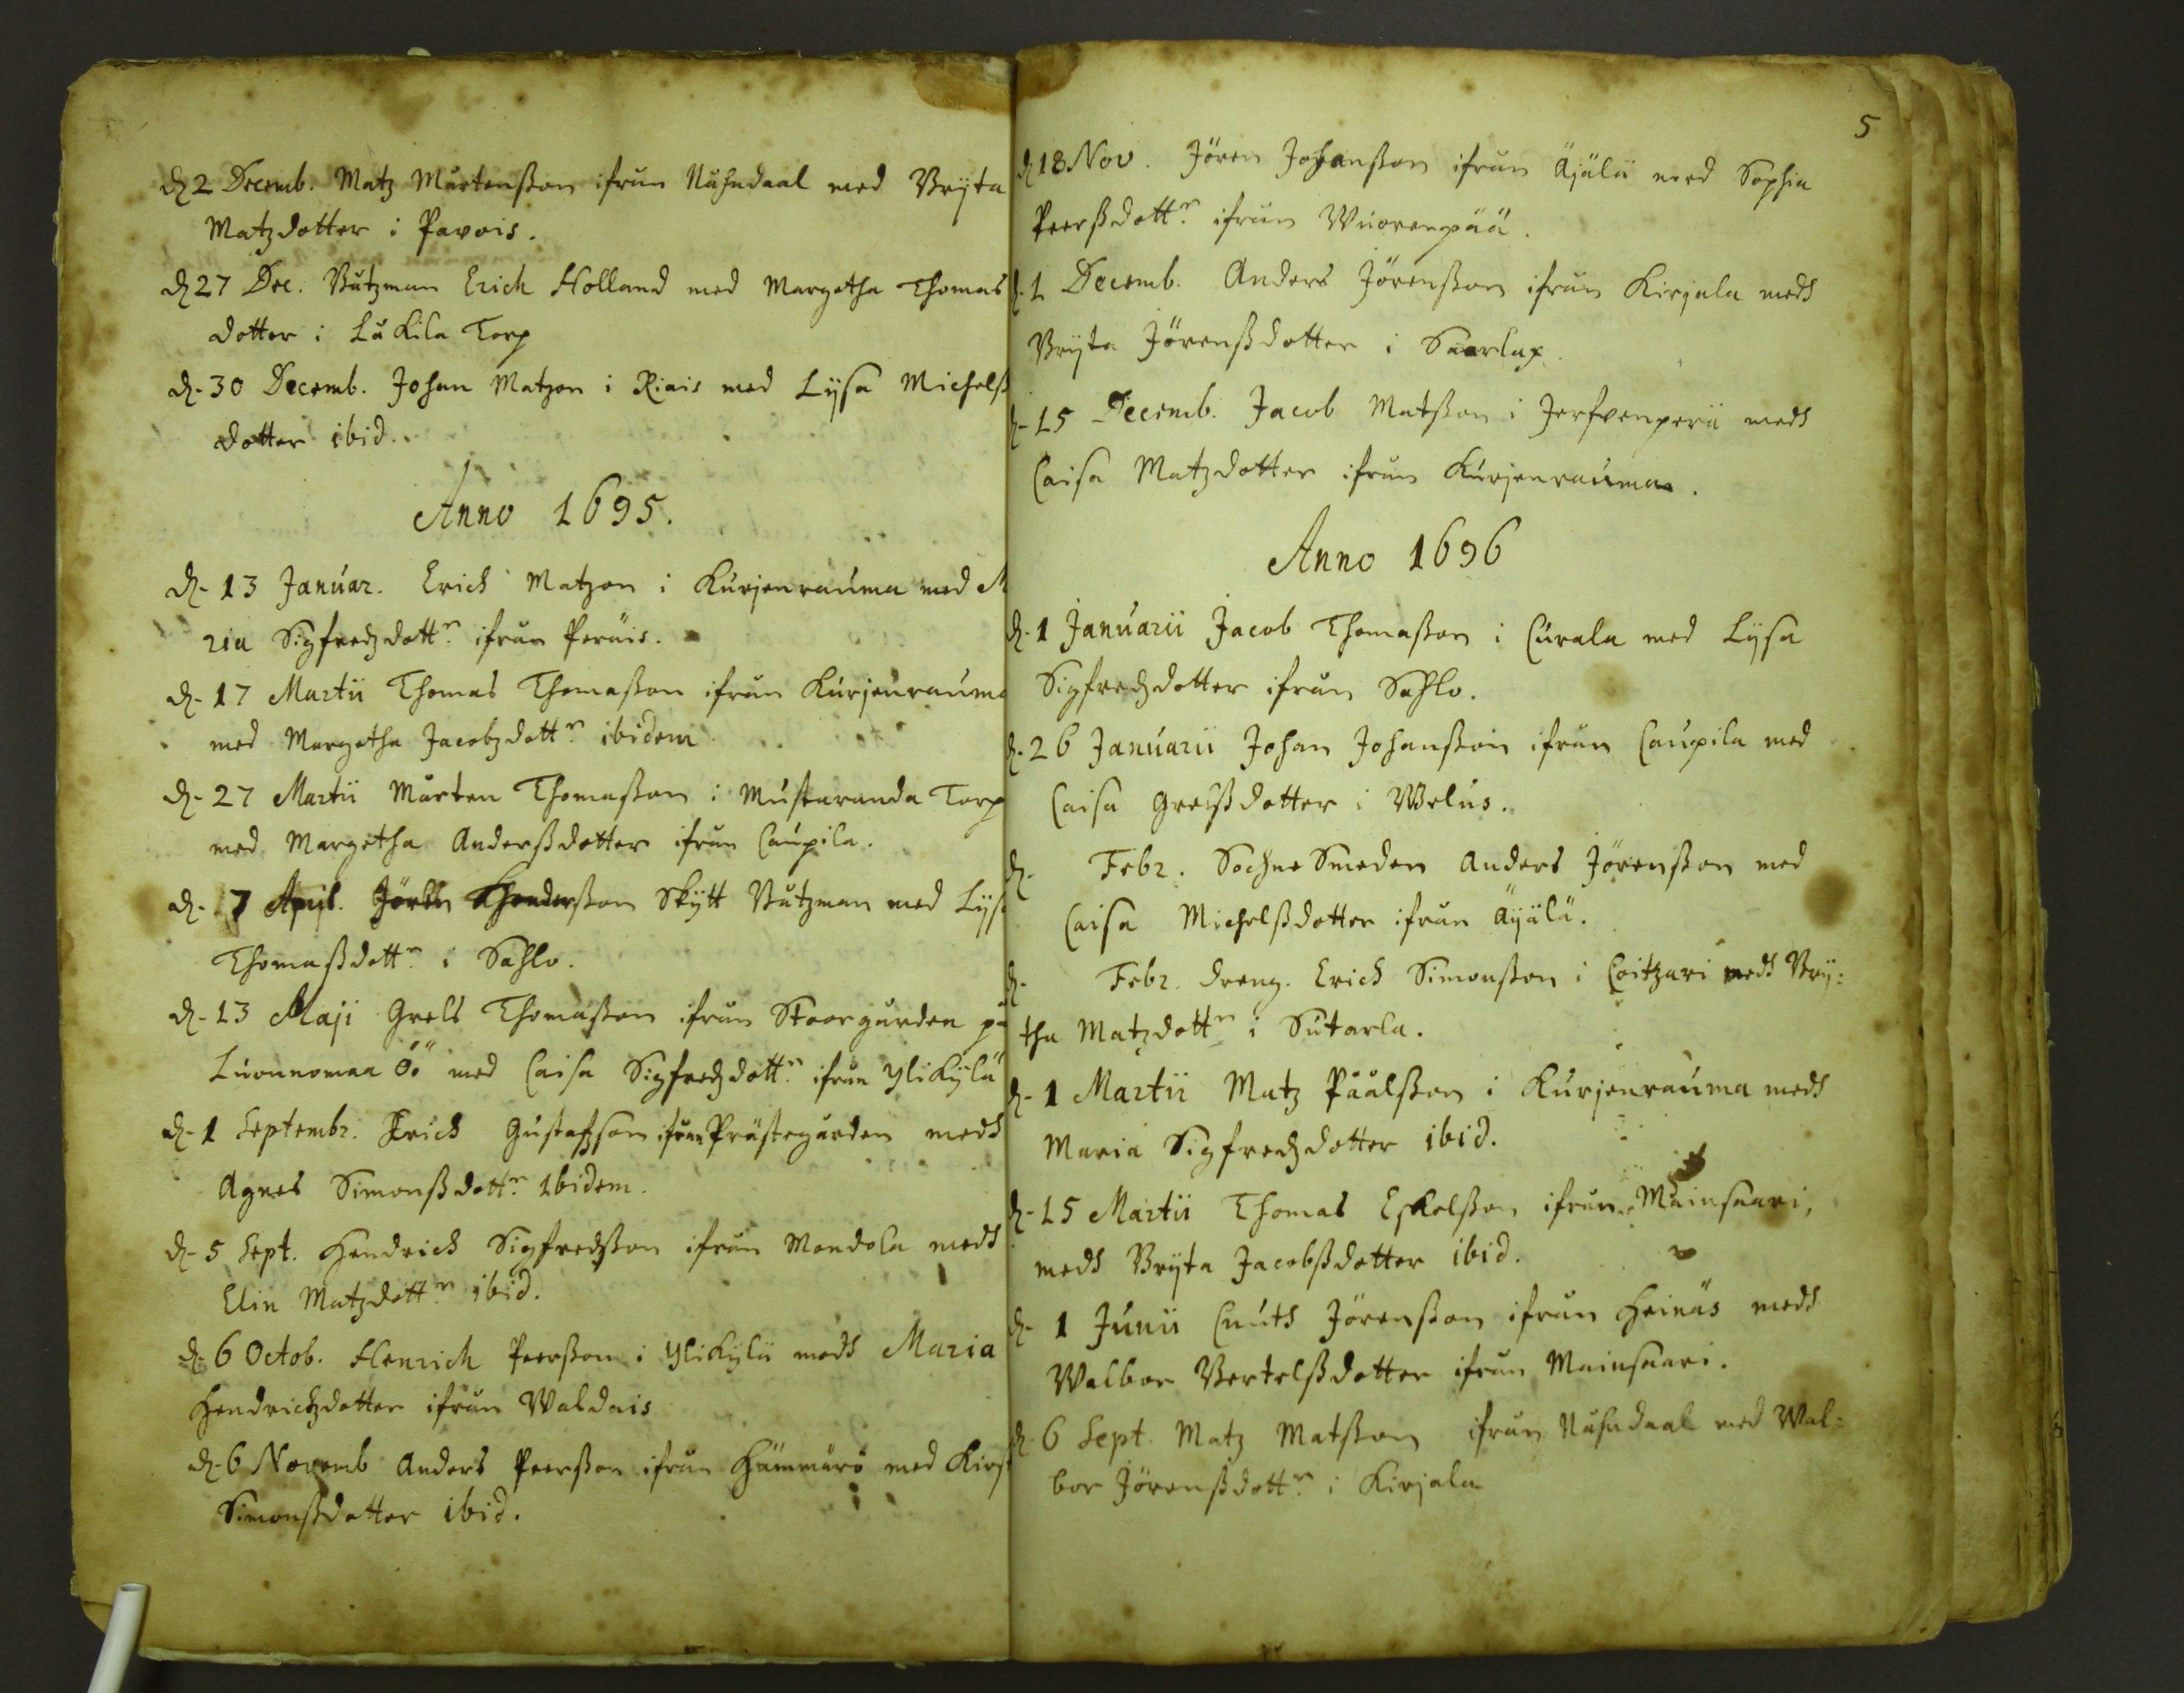 d. 2 Decemb. Matz Mårtensson ifrån Nåhndaal med Bryta
Matzdotter i Pavois.
d. 27 Dec. Båtzman Erich Holland med Margetha Thomas
dotter i Luckila Torp
d. 30 Decemb. Johan Matzon i Riais med Lysa Michelß
dotter ibid.
Anno 1695.
d. 13 Januar. Erich Matzon i Kurjenrauma med M
ria Sigfredzdottr. ifrån Peräis.
d. 17 Martii Thomas Thomasson ifrån Kurjenrauma
med Margetha Jacobzdottr. ibidem
d. 27 Martii Mårten Thomasson i Mustaranda Torp
med Margetha Anderssdotter ifrån Caupila.
d. 7 April. Jören Skytt Båtzman med Lys
Thomasdottr. i Sahlo.
d. 13 Maji Grels Thomasson ifrån Stoorgården på
Luonnomaa Öö med Caisa Sigfredzdottr. ifrån Ylikylä
d. 1 Septembr. Erich Gustafsson ifrån Prästegården medh
Agnes Simonssdottr. ibidem.
d. 5 Sept. Hendrich Sigfredsson ifrån Mondola medh
Elin Matzdottr. ibid.
d. 6 Octob. Henrich Peersson i Ylikylä medh Maria
Hendrichzdotter ifrån Waldais
d. 6 Novemb Anders Peersson ifrån Hämmärö med Kirst
Simonssdotter ibid.
5
d. 18 Nov. Jören Johansson ifrån Äjälä med Sophia
Peerssdottr. ifrån Wuorenpää.
d. 1 Decemb. Anders Jörensson ifrån Kirjala medh
Bryta Jörenssdotter i Saarlax.
d. 15 Decemb. Jacob Matsson i Jerfvenperä medh
Caisa Matzdotter ifrån Kurjenrauma.
Anno 1696
d. 1 Januarii Jacob Thomasson i Curala med Lysa
Sigfredzdotter ifrån Sahlo.
d. 26 Januarii Johan Johansson ifrån Caupila med
Caisa Grelssdotter i Welus.
d. Febr. Sochne Smeden Anders Jörensson med
Caisa Michelssdotter ifrån Äyälä.
d. Febr. dreng. Erich Simonsson i Coitzari medh Bry:
tha Matzdottr. i Sutarla.
d. 1 Martii Matz Påålsson i Kurjenrauma medh
Maria Sigfredzdotter ibid.
d. 15 Martii Thomas Eskelsson ifrån Mainsaari,
medh Bryta Jacobssdotter ibid.
d. 1 Junii Cnuth Jörensson ifrån Heinäs medh
Walbor Bertelssdotter ifrån Mainsaari.
d. 6 Sept. Matz Matsson ifrån Nåhndaal med Wal:
bor Jörenssdottr. i Kirjala